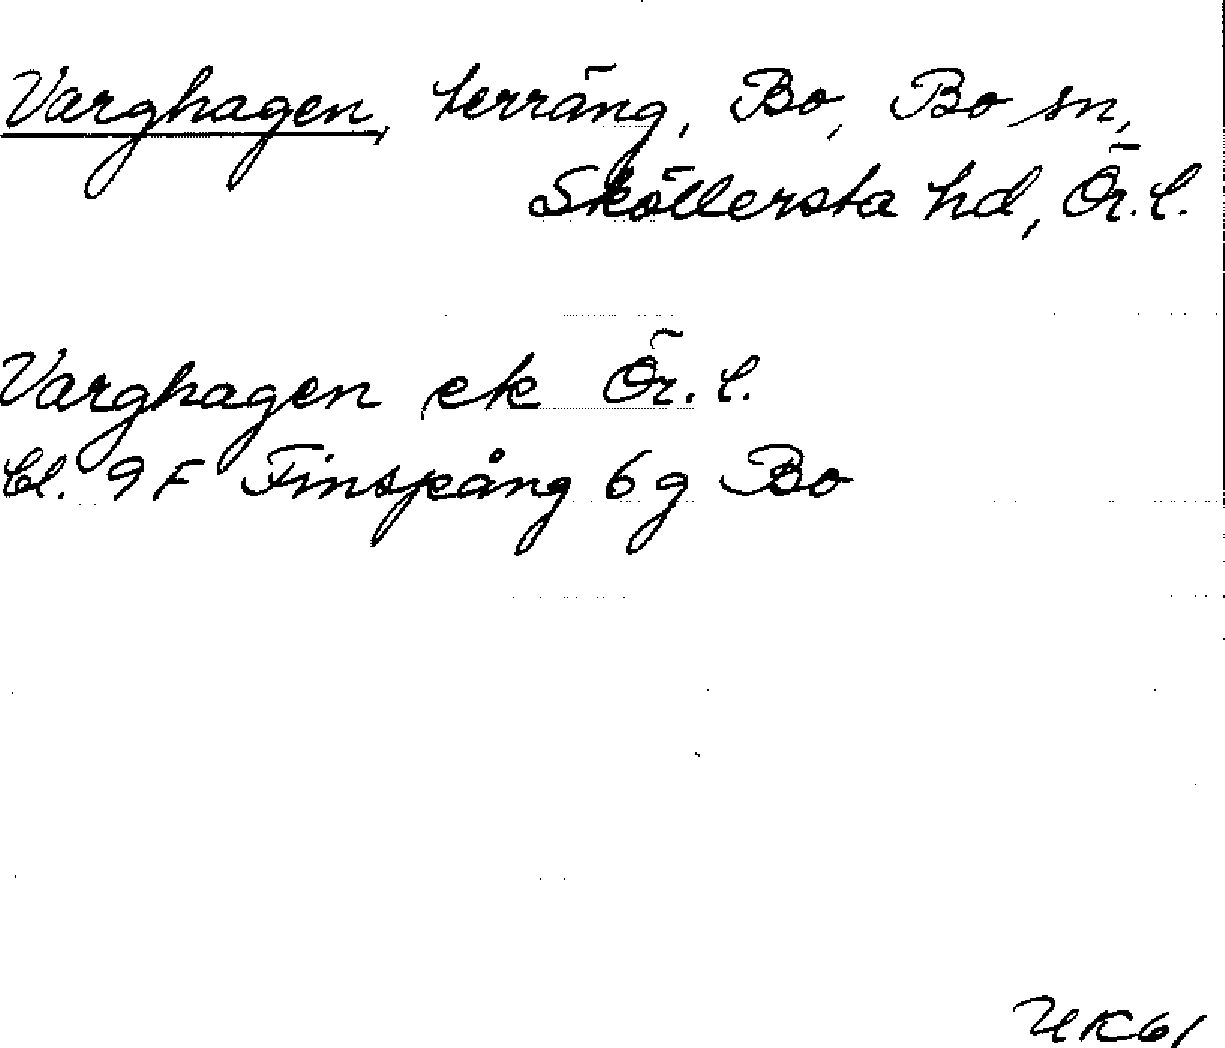 Varghagen, terräng, Bo, Bo sn,
Sköllersta hd, Ör. l.
Varghagen ek Ör. l.
Bl. 9 F Finspång 6 g Bo